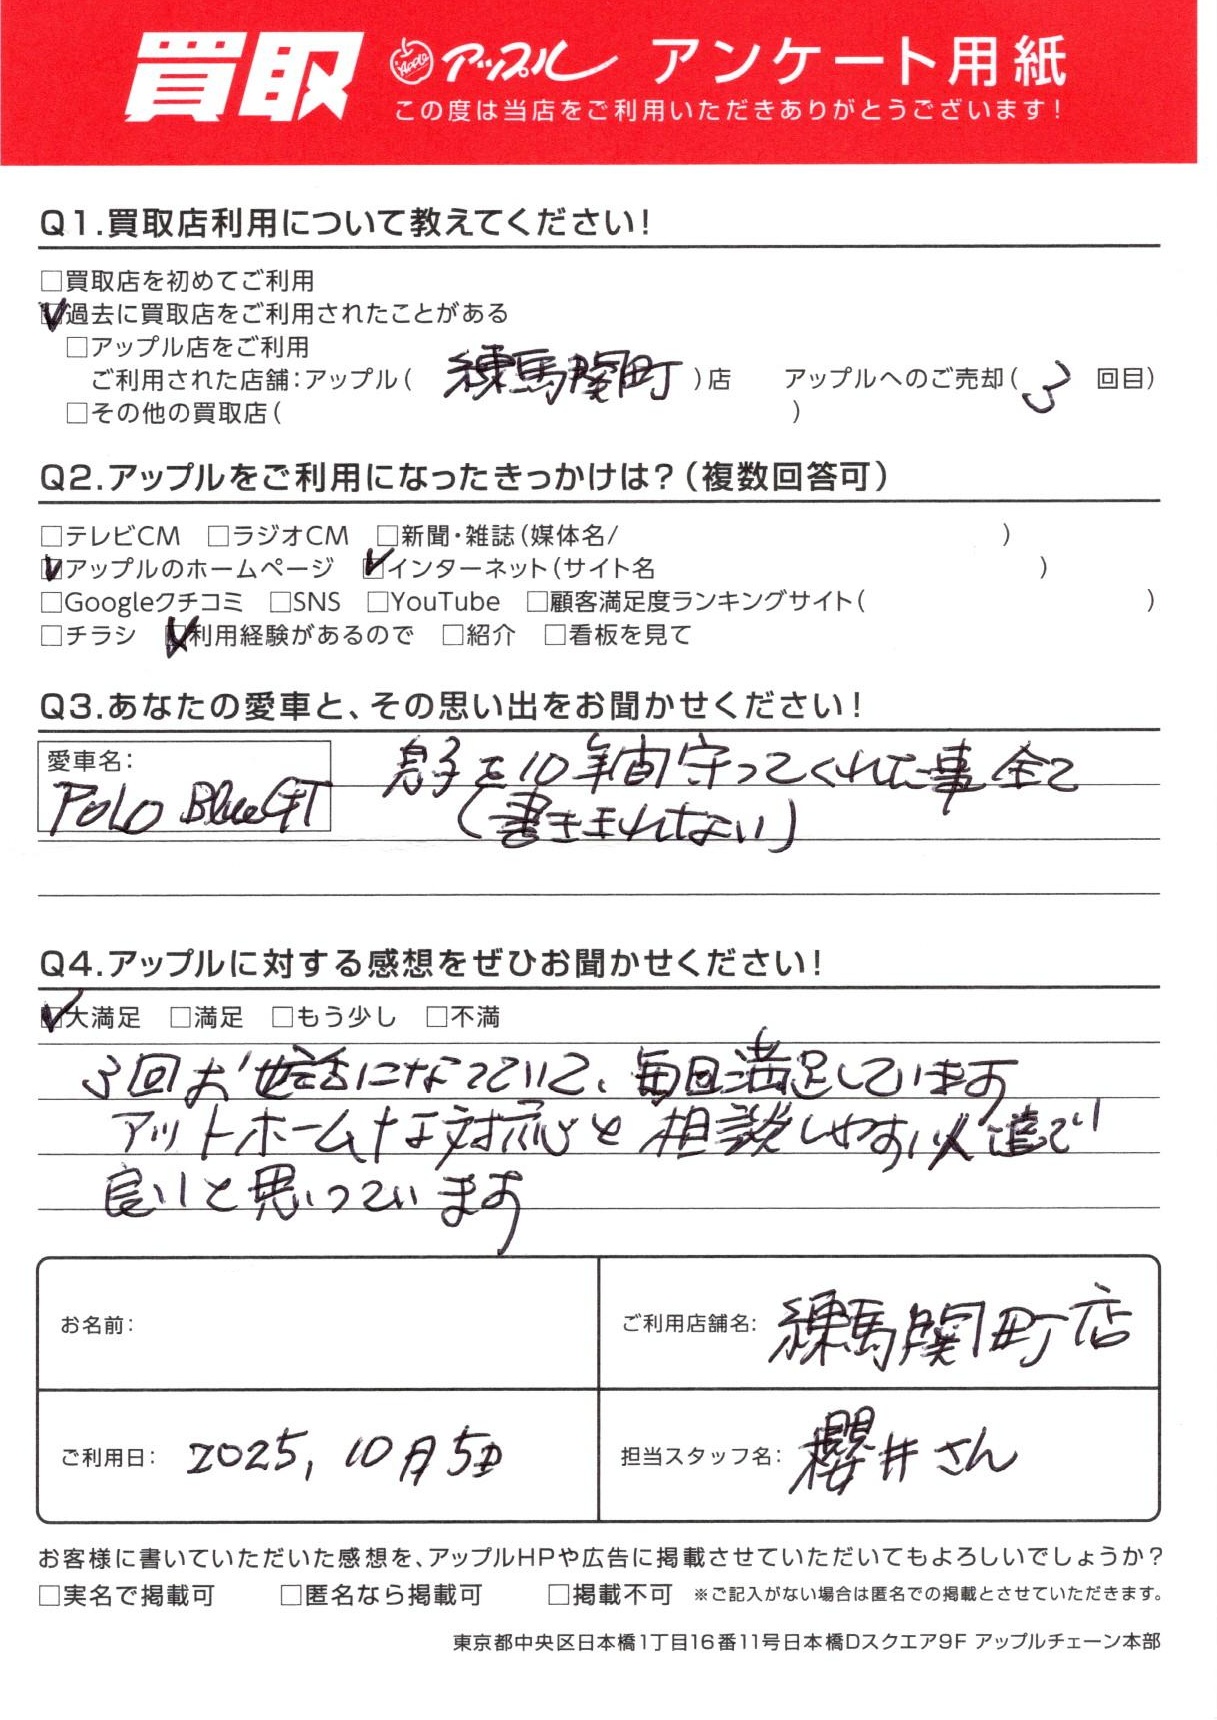 買取 Apple アップル アンケート用紙
この度は当店をご利用いただきありがとうございます!
Q1.買取店利用について教えてください!
□買取店を初めてご利用
☑過去に買取店をご利用されたことがある
□アップル店をご利用
ご利用された店舗:アップル( 練馬関町 )店 アップルへのご売却( 3 回目)
□その他の買取店( )
Q2.アップルをご利用になったきっかけは?(複数回答可)
□テレビCM □ラジオCM □新聞・雑誌(媒体名/ )
☑アップルのホームページ ☑インターネット(サイト名 )
□Googleクチコミ □SNS □YouTube □顧客満足度ランキングサイト( )
□チラシ ☑利用経験があるので □紹介 □看板を見て
Q3.あなたの愛車と、その思い出をお聞かせください!
愛車名: 息子を10年間守ってくれた事全て
POLO BlueGT (書ききれない)
Q4.アップルに対する感想をぜひお聞かせください!
☑大満足 □満足 □もう少し □不満
3回お世話になっていて、毎回満足しています
アットホームな対応と相談しやすい人達で
良いと思っています
お名前: ご利用店舗名: 練馬関町店
ご利用日: 2025, 10月5日 担当スタッフ名: 櫻井さん
お客様に書いていただいた感想を、アップルHPや広告に掲載させていただいてもよろしいでしょうか?
□実名で掲載可 □匿名なら掲載可 □掲載不可 ※ご記入がない場合は匿名での掲載とさせていただきます。
東京都中央区日本橋1丁目16番11号日本橋Dスクエア9F アップルチェーン本部